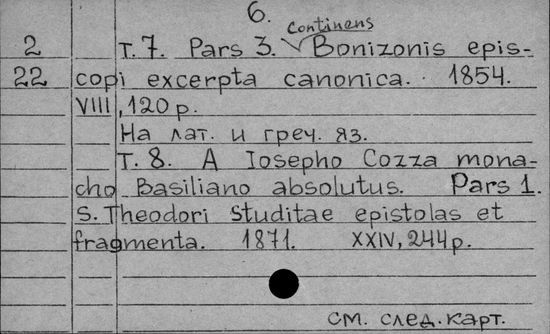 6.
continens
2 т. 7. Pars 3. Bonizonis epis-
22 copi excerpta canonica. 1854.
VIII, 120 p.
На лат. и греч. яз.
т. 8. A Iosepho Cozza mona-
cho Basiliano absolutus. Pars 1.
S. Theodori Studitae epistolas et
fragmenta. 1871. XXIV, 244 p.
см. след. карт.